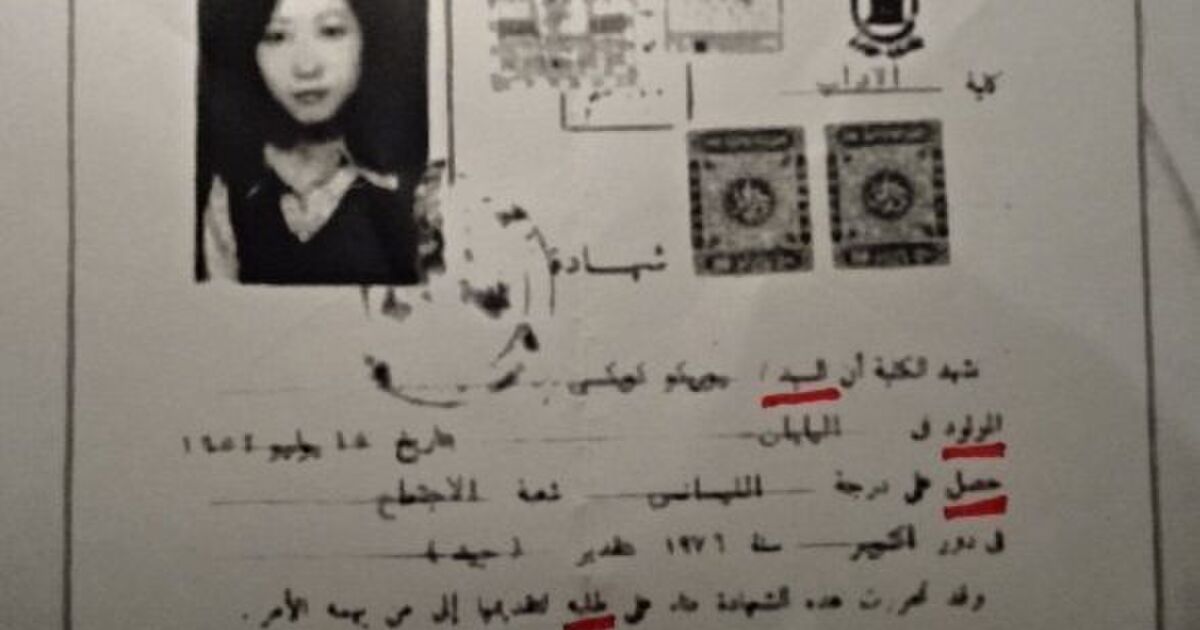 كلية الآداب
شهادة
تشهد الكلية أن السيد /
المولود فى اليابان تاريخ ١٥ يوليو ١٩٥٢
حصل على درجة الليسانس شعبة الاجتماع
فى دور أكتوبر سنة ١٩٧٦ بتقدير ( جيد )
وقد تحررت هذه الشهادة بناء على طلبه لتقديمها إلى من يهمه الأمر .